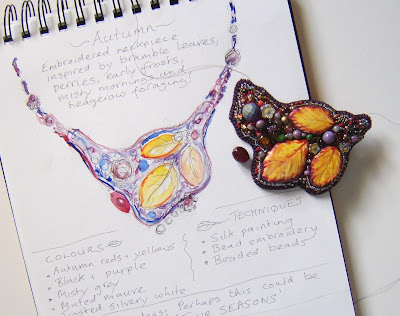 ~ Autumn ~
Embroidered neckpiece
inspired by bramble leaves,
berries, early frosts,
misty mornings and
hedgerow foraging!
COLOURS
• Autumn reds + yellows
• Black + purple
• Misty grey
• Muted mauve
• Frosted silvery white
TECHNIQUES
• Silk painting
• Bead embroidery
• Beaded beads
Perhaps this could be
SEASONS'